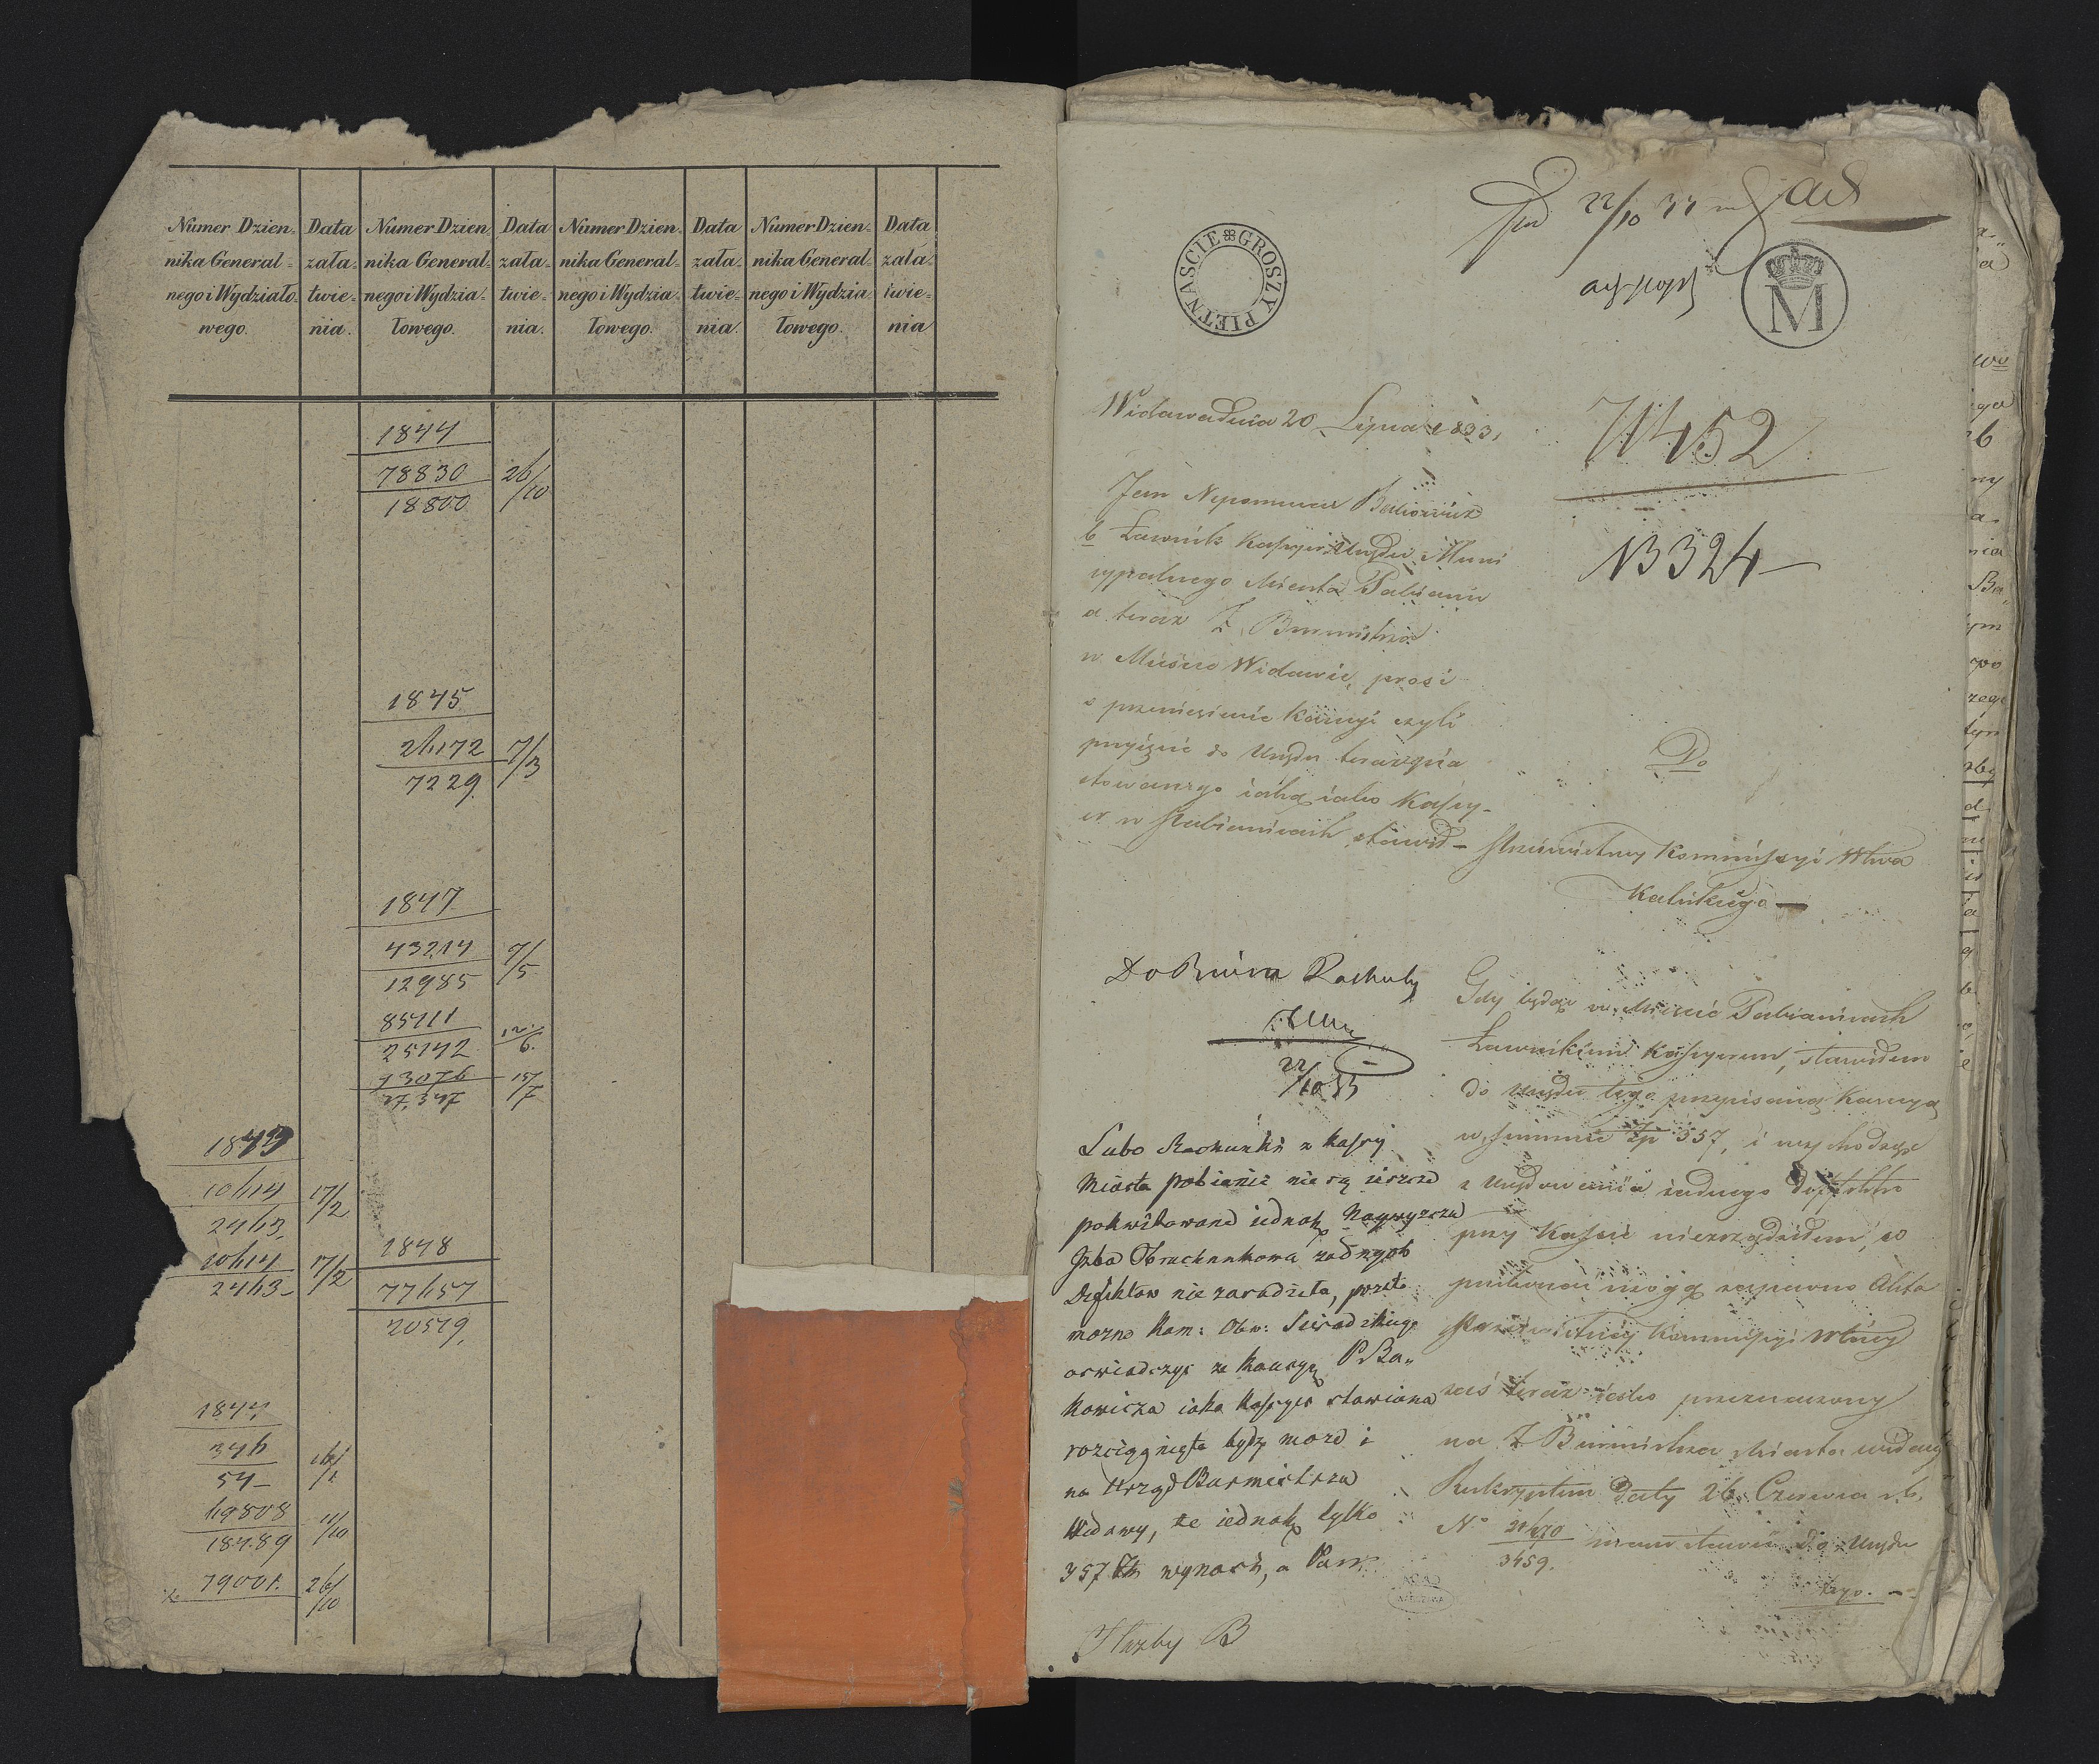 Numer Dzien-
nika General-
nego i Wydziało-
wego.
Data
zała-
twie-
nia.
Numer Dzien
nika General-
nego i Wydzia-
łowego.
Data
zała-
twie-
nia.
Numer Dzien-
nika General-
nego i Wydzia-
łowego.
Data
zała-
twie-
nia.
Numer Dzien-
nika General-
nego i Wydzia-
łowego.
Data
zała-
twie-
nia
1844
78830 26/10
18800
1845
26172 7/3
7229.
1847
43214 7/5
12985
85111 12/6.
25142
13076 15/7
1848
77657
20579.
10614 17/2
2463.
10614 17/2
2463-
1844
346
54-
69808 11/10
18489
79001. 26/10
GROSZY PIETNASCIE
M
22/10 33
71452
13324
Widawa dnia 20 Lipca 1833.
Jan Nepomucen Bakowicz
b Ławnik Kassyer Urzędu Muni
cypalnego Miasta Pabianic
a teraz Z. Burmistrza
w Mieście Widawie, prosi
o przeniesienie kaucyi czyli
przyięcie do Urzędu teraz
iaką iako Kassy-
er w Pabianicach stawił -
Do
Prześwietney Kommissyi Wtwa
Kaliskiego
Do Biura Rachuby
22/10 33
Lubo Rachunki z kassy
Miasta Pabianic nie są ieszcze
pokwitowane iednak Naywyzsza
Izba Obrachunkowa zadnych
Defektow nie zaradziła, przeto
mozna Kom: Obw: Sieradzkiego
oswiadczyc ze Kaucya P Ba-
kowicza iako Kassyer stawiona
rozciągnięta bydz może i
na Urząd Burmistrza
Widawy, że iednak tylko
357 wynosi, a Pan
Służby B
Gdy będąc w Mieście Pabianicach
Ławnikiem Kassyerem, stawiłem
do urzędu tego przypisaną Kaucyą
w summie Zp 357, i wychodząc
z Urzędowania żadnego defektu
przy Kassie niezrządziłem, co
przekonać mogą zapewne Akta
Prześwietney Kommissyi Wtwy
zaś teraz iako przeznaczony
na Z Burmistrza Miasta Widawy
Reskryptem daty 26 Czerwca r b.
N° 20670
3459. do Urzędu
tego. -